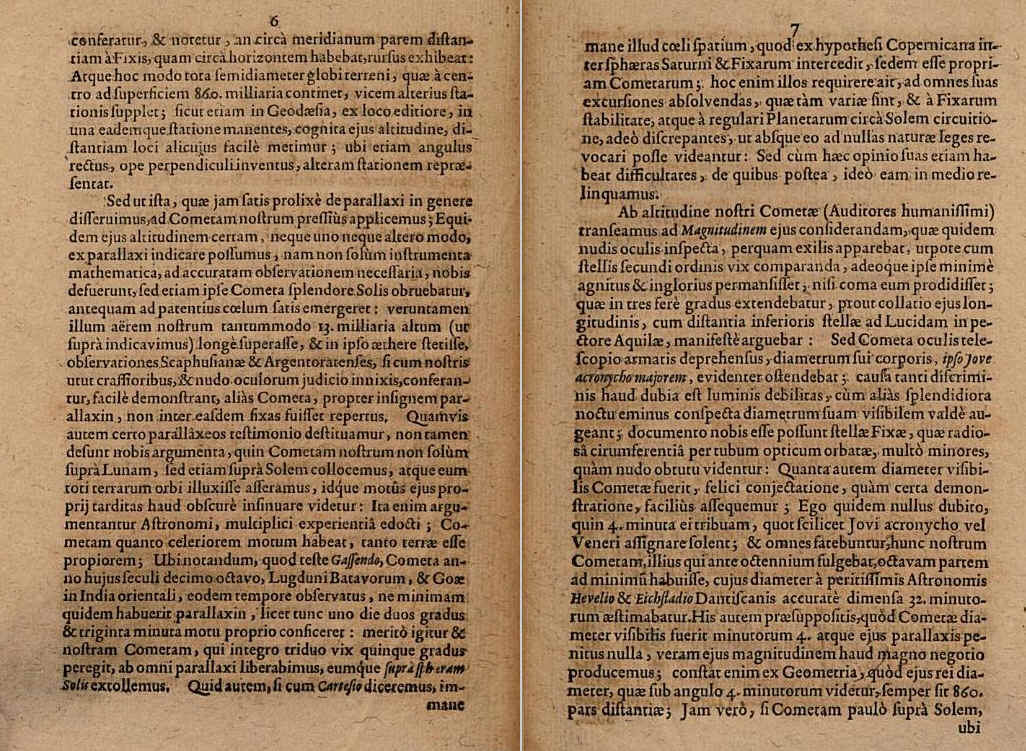 6
conferatur, & notetur, an circà meridianum parem diſtan-
tiam à Fixis, quam circà horizontem habebat, rurſus exhibeat:
Atque hoc modo tota ſemidiameter globi terreni, quæ à cen-
tro ad ſuperficiem 860. milliaria continet, vicem alterius ſta-
tionis ſupplet; ſicut etiam in Geodæſia, ex loco editiore, in
una eademque ſtatione manentes, cognita ejus altitudine, di-
ſtantiam loci alicujus facilè metimur; ubi etiam angulus
rectus, ope perpendiculi inventus, alteram ſtationem repræ-
ſentat.
Sed ut iſta, quæ jam ſatis prolixè de parallaxi in genere
diſſeruimus, ad Cometam noſtrum preſſiùs applicemus; Equi-
dem ejus altitudinem certam, neque uno neque altero modo,
ex parallaxi indicare poſſumus, nam non ſolùm inſtrumenta
mathematica, ad accuratam obſervationem neceſſaria, nobis
defuerunt, ſed etiam ipſe Cometa ſplendore Solis obruebatur,
antequam ad patentius cœlum ſatis emergeret: veruntamen
illum aërem noſtrum tantummodo 13. milliaria altum (ut
ſuprà indicavimus) longè ſuperaſſe, & in ipſo æthere ſtetiſſe,
obſervationes Scaphuſianæ & Argentoratenſes, ſi cum noſtris
utut craſſioribus, & nudo oculorum judicio innixis, conferan-
tur, facilè demonſtrant, aliàs Cometa, propter inſignem par-
allaxin, non inter easdem fixas fuiſſet repertus. Quamvis
autem certo parallaxeos teſtimonio deſtituamur, non tamen
deſunt nobis argumenta, quin Cometam noſtrum non ſolùm
ſuprà Lunam, ſed etiam ſuprà Solem collocemus, atque eum
toti terrarum orbi illuxiſſe aſſeramus, idque motûs ejus pro-
prij tarditas haud obſcurè inſinuare videtur: Ita enim argu-
mentantur Aſtronomi, multiplici experientiâ edocti; Co-
metam quanto celeriorem motum habeat, tanto terræ eſſe
propiorem; Ubi notandum, quod teſte Gaſſendo, Cometa an-
no hujus ſeculi decimo octavo, Lugduni Batavorum, & Goæ
in India orientali, eodem tempore obſervatus, ne minimam
quidem habuerit parallaxin, licet tunc uno die duos gradus
& triginta minuta motu proprio conficeret: meritò igitur &
noſtram Cometam, qui integro triduo vix quinque gradus
peregit, ab omni parallaxi liberabimus, eumque ſupra ſphæram
Solis extollemus. Quid autem, ſi cum Carteſio diceremus, im-
mane
7
mane illud cœli ſpatium, quod ex hypotheſi Copernicana in-
ter ſphæras Saturni & Fixarum intercedit, ſedem eſſe propri-
am Cometarum; hoc enim illos requirere ait, ad omnes ſuas
excurſiones abſolvendas, quæ tàm variæ ſint, & à Fixarum
ſtabilitate, atque à regulari Planetarum circà Solem circuitio-
ne, adeò diſcrepantes, ut abſque eo ad nullas naturæ leges re-
vocari poſſe videantur: Sed cùm hæc opinio ſuas etiam ha-
beat difficultates, de quibus poſtea, ideò eam in medio re-
linquamus.
Ab altitudine noſtri Cometæ (Auditores humaniſſimi)
tranſeamus ad Magnitudinem ejus conſiderandam, quæ quidem
nudis oculis inſpecta, perquam exilis apparebat, utpote cum
ſtellis ſecundi ordinis vix comparanda, adeoque ipſe minimè
agnitus & inglorius permanſiſſet, niſi coma eum prodidiſſet;
quæ in tres ferè gradus extendebatur, prout collatio ejus lon-
gitudinis, cum diſtantia inferioris ſtellæ ad Lucidam in pe-
ctore Aquilæ, manifeſtè arguebar: Sed Cometa oculis tele-
ſcopio armatis deprehenſus, diametrum ſui corporis, ipſo Jove
acronycho majorem, evidenter oſtendebat; cauſſa tanti diſcrimi-
nis haud dubia eſt luminis debilitas, cùm aliàs ſplendidiora
noctu eminus conſpecta diametrum ſuam viſibilem valdè au-
geant; documento nobis eſſe poſſunt ſtellæ Fixæ, quæ radio-
sâ circumferentiâ per tubum opticum orbatæ, multò minores,
quàm nudo obtutu videntur: Quanta autem diameter viſibi-
lis Cometæ fuerit, felici conjectatione, quàm certa demon-
ſtratione, faciliùs aſſequemur; Ego quidem nullus dubito,
quin 4. minuta ei tribuam, quot ſcilicet Jovi acronycho vel
Veneri aſſignare ſolent; & omnes fatebuntur, hunc noſtrum
Cometam, illius qui ante octennium fulgebat, octavam partem
ad minimũ habuiſſe, cujus diameter à peritiſſimis Aſtronomis
Hevelio & Eichſtadio Dantiſcanis accuratè dimenſa 32. minuto-
rum æſtimabatur. His autem præſuppoſitis, quòd Cometæ dia-
meter viſibilis fuerit minutorum 4. atque ejus parallaxis pe-
nitus nulla, veram ejus magnitudinem haud magno negotio
producemus; conſtat enim ex Geometria, quòd ejus rei dia-
meter, quæ ſub angulo 4. minutorum videtur, ſemper ſit 860.
pars diſtantiæ; Jam verò, ſi Cometam paulò ſuprà Solem,
ubi